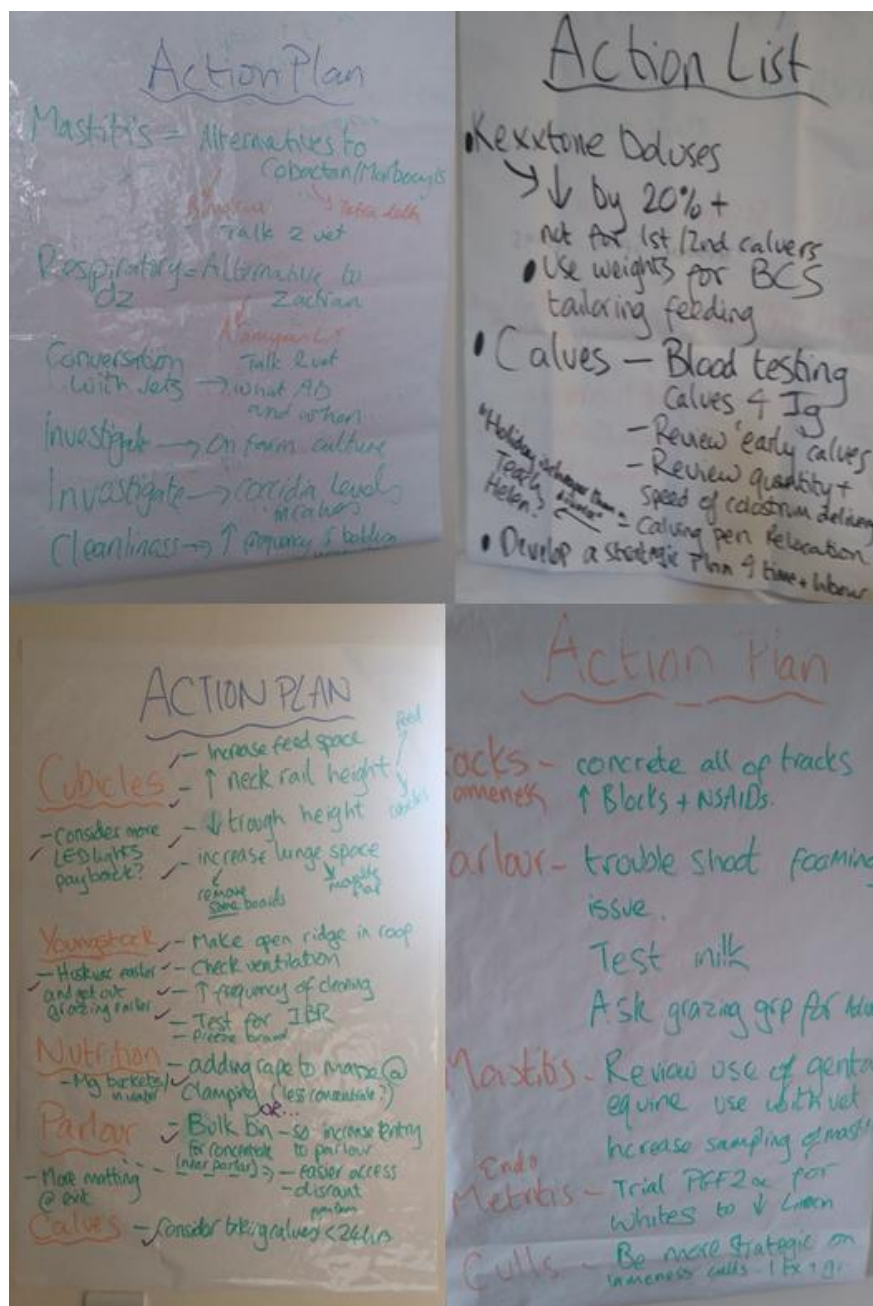 Action Plan
Mastitis = Alternatives to
Cobactan/Marbocyl
Talk 2 vet
Respiratory = Alternative to
dz Zactran
Talk 2 vet
Conversation
with Vets → What AB
and when
Investigate → On farm culture
Investigate → coccidia levels
in calves
Cleanliness → ↑ frequency
Action List
• Kexxtone Boluses
↓ by 20% +
not for 1st/2nd calvers
• Use weights for BCS
tailoring feeding
• Calves - Blood testing
calves 4 Ig
- Review early calves
- Review quantity +
speed of colostrum delivery
- Calving pen Relocation
"Holiday
Teach
Helen"
• Develop a strategic Plan 4 time + labour
ACTION PLAN
Cubicles
- Increase feed space
- ↑ neck rail height
feed
cubicles
- ↓ trough height
- increase lunge space
remove
some boards
- consider more
LED lights
payback?
Youngstock
- Make open ridge in roof
- Check ventilation
- ↑ frequency of cleaning
- Test for IBR
- Freeze brand
- Huskvac easier
and get out
grazing earlier
Nutrition
- adding rape to maize @
Clamping (less concentrate?)
- Mg buckets/
in water
or...
Parlour
- Bulk bin - so increase entry
for concentrate to parlour
(near parlour) ⇒ - easier access
- distant
- More matting
@ exit
Calves - Consider taking calves <24hrs
Action Plan
acks - concrete all of tracks
ameness ↑ Blocks + NSAIDs.
arlour - trouble shoot foaming
issue.
Test milk
Ask grazing grp for
Mastitis - Review use of genta
equine use with vet
Increase sampling of mast
Endo
Metritis - Trial PGF2α for
whites to ↓
Culls - Be more strategic on
lameness culls -